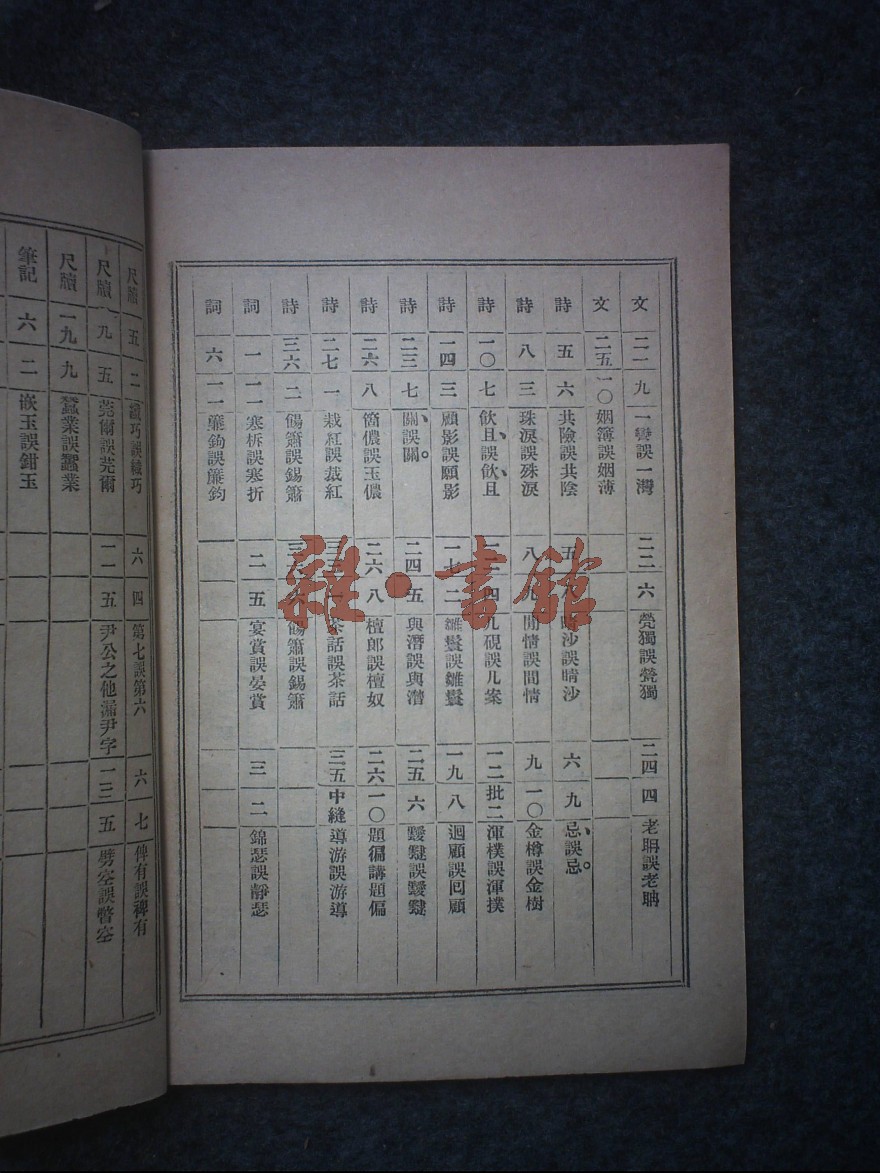 文 二一 九 一彎誤一灣 二二 六 煢獨誤甇獨 二四 四 老聃誤老聃
文 二五 一〇 姻簿誤姻薄
詩 五 六 共險誤共陰 五 八 晴沙誤睛沙 六 九 忌、誤忌。
詩 八 三 珠淚誤殊淚 八 九 閒情誤間情 九 一〇 金樽誤金樹
詩 一〇 七 飲且、誤飲、且 四 几硯誤几案 一二 批二 渾樸誤渾撲
詩 一四 三 顧影誤願影 一七 二 誤雛鬟 一九 八 迴顧誤回顧
詩 二三 七 關、誤關。 二四 五 與潛誤與濳 二五 六
詩 二六 八 箇儂誤玉儂 二六 八 檀郎誤檀奴 二六 一〇 題徧講題偏
詩 二七 一 栽紅誤裁紅 茶話誤茶話 三五 中縫 導游誤游導
詩 三六 二 餳簫誤錫簫 餳簫誤錫簫
詞 一 一一 寒柝誤寒折 二 五 宴賞誤晏賞 三 二 錦瑟誤靜瑟
詞 六 一一 簾鉤誤簾鈎
雜·書館
尺牘 五 二 巧誤織巧 六 四 第七誤第六 六 七 俾有誤裨有
尺牘 九 五 莞爾誤莞爾 一一 五 尹公之他漏尹字 一三 五 劈空誤瞥空
尺牘 一九 九 蠶業誤蠶業
筆記 六 二 嵌玉誤鉗玉